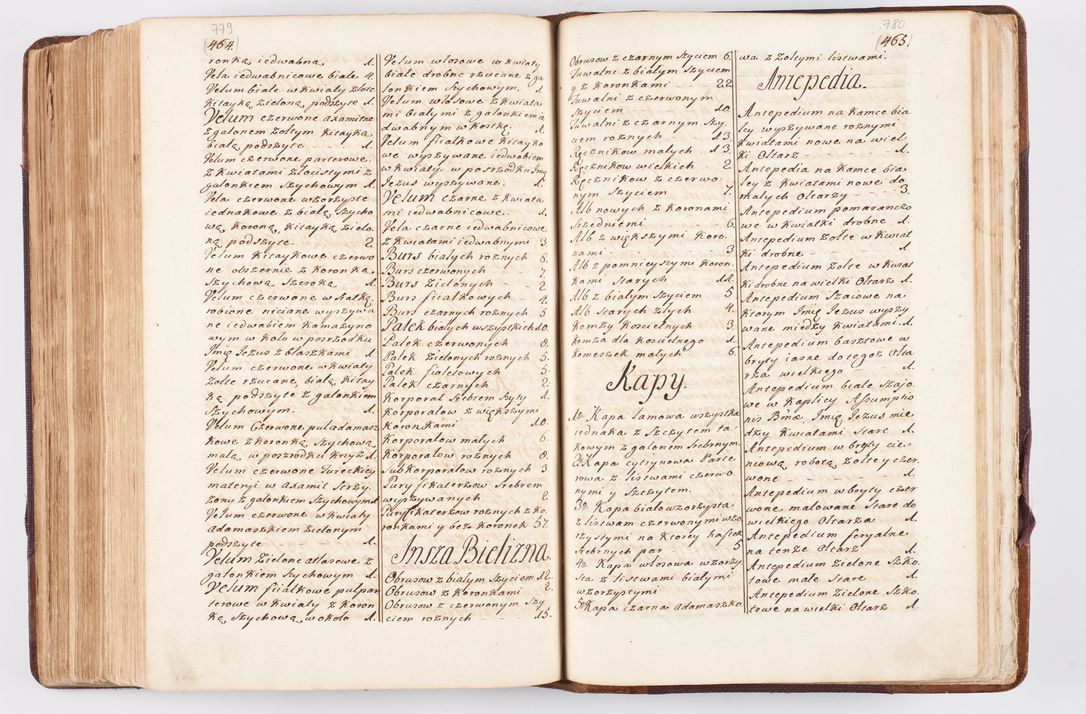 779
464.
ronką iedwabną 1.
Vela iedwabnicowe białe 4.
Velum białe w kwiaty złote
kitayką zieloną podszyte 1.
Velum czerwone axamitne
z galonem żołtym kitayką
białą podszyte 1.
Velum czerwone parterowe
z kwiatami złocistymi z
galonkiem szychowym 1.
Vela czerwone wzorzyste
iednakowe z białą szycho
wą koroną kitayką zielo
ną podszyte 2
Velum kitaykowe czerwo
ne obszernie z koronką
szychową szeroką 1.
Velum czerwone w siatkę
robione niciane wyszywa
ne iedwabiem karmazyno
wym w koło w porzodku
Imię Jezus z blaszkami 1
Velum czerwone w kwiaty
żołte rzucane, białą kitay
ką podszyte z galonkiem
szychowym. 1.
Velum Czerwone puladamasz
kowe z koronką szychową
małą w poszrodku krzyż 1.
Velum czerwone Tureckiey
materyi w axamit strzy
żony z galonkiem szychowym 1
Velum czerwone w kwiaty
adamaszkiem zielonym
podszyte 1.
Velum Zielone atlasowe z
galonkiem szychowym 1.
Velum fiiałkowe pulpar
terowe w kwiaty z koron
ką szychową w około 1.
Velum włosowe w kwiaty
białe drobne rzucane z ga
lonkiem szychowym. 1
Velum włosowe z kwiata
mi białymi z galonkiem ie
dwabnym w kostkę. 1
Velum fiiałkowe kitayko
we wyszywane iedwabiem
w kwiaty w poszrodku Imię
Jezus wyszywane. 1.
Velum czarne z kwiata
mi iedwabnicowe. 1.
Vela czarne iedwabnicowe
z kwiatami iedwabnymi 3.
Burs białych rożnych 6.
Burs czerwonych 7.
Burs Zielonych 2
Burs fiiałkowych 4.
Burs czarnych rożnych 5
Palek białych wszystkich 10.
Palek czerwonych 8.
Palek Zielonych rożnych 5.
Palek fiałesowych 5.
Palek czarnych 2.
Korporał srebrem szyty 1
Korporałow z większymi
Koronkami 10.
Korporałow małych 6.
Korporałow rożnych 8.
Subkorporałow rożnych 3
Puryfikaterzow srebrem
wyszywanych 2.
Puryfikaterzow rożnych z ko
ronkami y bez Koronek 57.
Insza Bielizna.
Obrusow z białym szyciem 12.
Obrusow z Koronkami 2.
Obrusow z czerwonym szy
ciem rożnych 15.
780
465.
Obrusow z czarnym szyciem 6.
Tuwalni z białym szyciem
y z koronkami 22
Tuwalni z czerwonym
szyciem 10.
Tuwalni z czarnym szy
ciem rożnych 13.
Ręcznikow małych 13.
Ręcznikow wielkich 2
Ręcznikow z czerwo
nym szyciem 7.
Alb nowych z koronami
srzedniemi 6.
Alb z większymi koro
nami 3
Alb z pomnieyszymi koron
kami starych 12.
Alb z białym szyciem 5
Alb starych złych 4.
Komży kościelnych 3.
Komża dla kościelnego 1.
Komeszek małych 6.
Kapy.
1mo Kapa lamowa wszystka
iednaka z szczytem ta
kowym z galonem srebrnym.
2do Kapa cytrynowa parte
rowa z listwami czerwo
nymi y szczytem.
3o Kapa biało wzorzysta
z listwam czerwonymi wzo
rzystymi na ktorey kaftek
srebrnych par 5
4o Kapa włosowa wzorzy
sta z listwami białymi
wzorzystymi
5o Kapa czarna adamaszko
wa z żołtymi listwami.
Antepedia.
Antepedium na kamce bia
łey wyszywane rożnymi
kwiatami nowe na wiel
ki Ołtarz 1.
Antepedia na kamce bia
łey z kwiatami nowe do
małych Ołtarzy 3.
Antepedium pomarańczo
we w kwiatki drobne 1.
Antepedium żołte w kwiat
ki drobne 1
Antepedium żołte w kwiat
ki drobne na wielki Ołtarz 1.
Antepedium szarowe na
ktorym Imię Jezus wyszy
wane między kwiatami. 1.
Antepedium barsztowe w
bryty iasne do tegoż Ołta
rza wielkiego 1.
Antepedium białe szajo
we w kaplicy Assumptio
nis Bmae Imię Jezus mie
dzy kwiatami stare 1.
Antepedium w bryty cie
niową robotą żołte y czer
wone 1.
Antepedium w bryty czer
wone malowane stare do
wielkiego Ołtarza 1.
Antepedium feryalne
na tenże Ołtarz 1.
Antepedium Zielone szko
towe małe stare 1.
Antepedium Zielone szko.
towe na wielki Ołtarz 1.